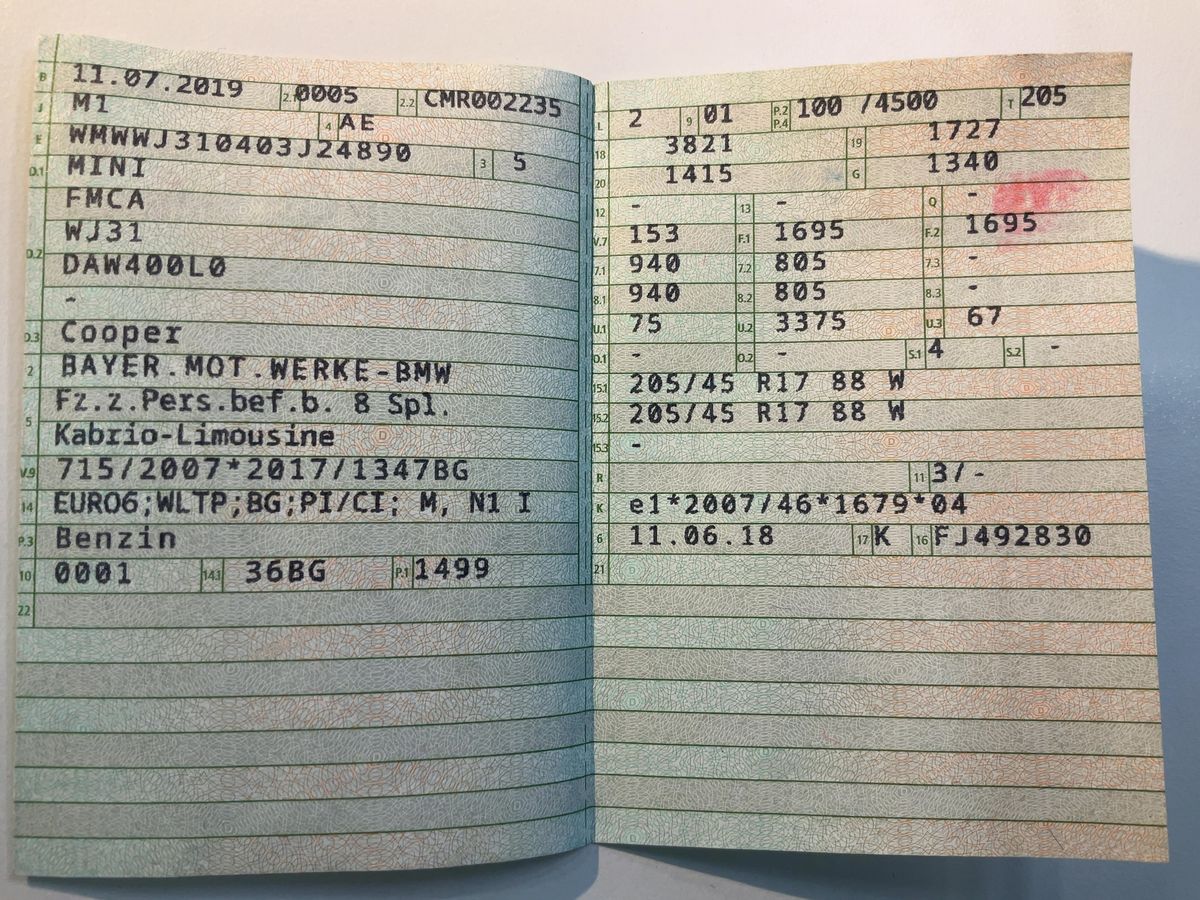 B 11.07.2019 2.1 0005 2.2 CMR002235
J M1 4 AE
E WMWWJ310403J24890 3 5
D.1 MINI
FMCA
D.2 WJ31
DAW400L0
-
D.3 Cooper
2 BAYER.MOT.WERKE-BMW
5 Fz.z.Pers.bef.b. 8 Spl.
Kabrio-Limousine
V.9 715/2007*2017/1347BG
14 EURO6;WLTP;BG;PI/CI; M, N1 I
P.3 Benzin
10 0001 14.1 36BG P.1 1499
22
L 2 9 01 P.2 P.4 100 /4500 T 205
18 3821 19 1727
20 1415 G 1340
12 - 13 - Q -
V.7 153 F.1 1695 F.2 1695
7.1 940 7.2 805 7.3 -
8.1 940 8.2 805 8.3 -
U.1 75 U.2 3375 U.3 67
O.1 - O.2 - S.1 4 S.2 -
15.1 205/45 R17 88 W
15.2 205/45 R17 88 W
15.3 -
R 11 3/-
K e1*2007/46*1679*04
6 11.06.18 17 K 16 FJ492830
21